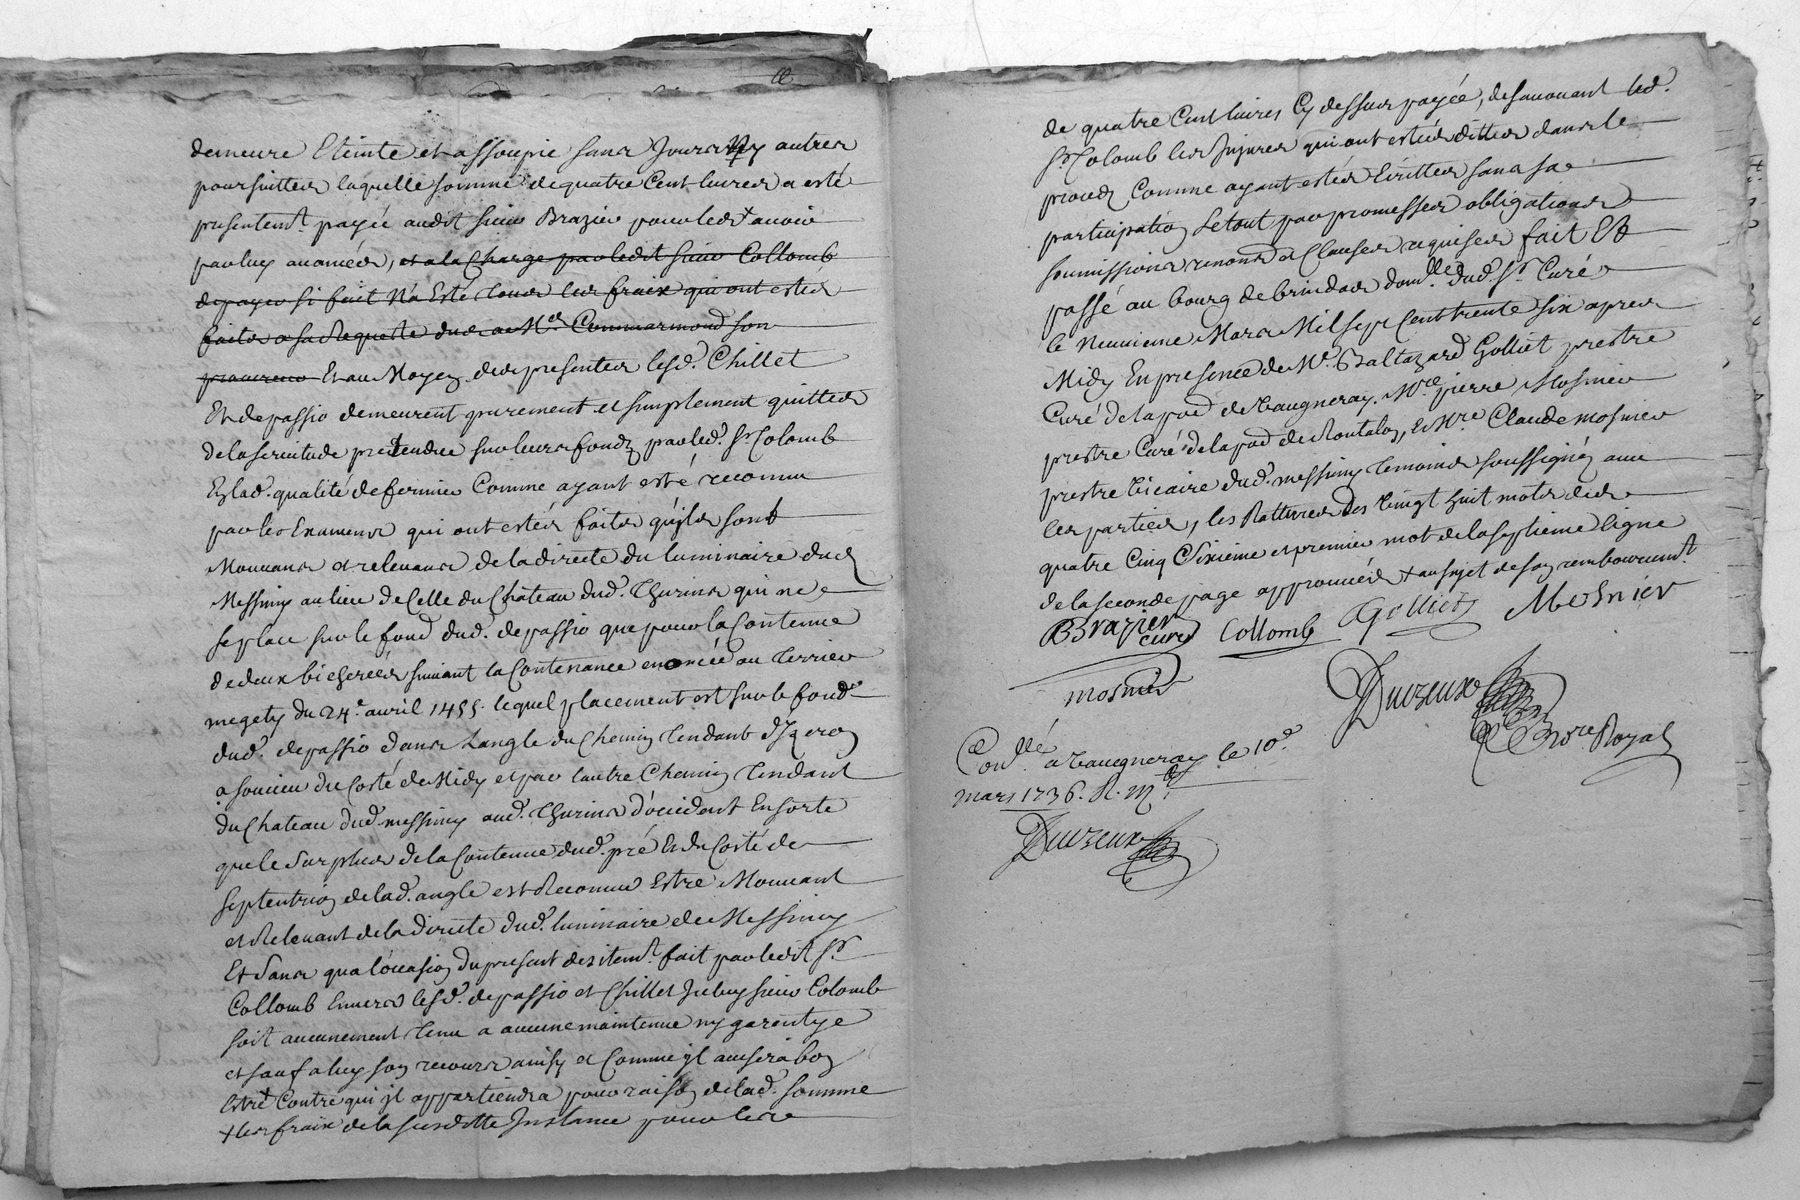 demeure Eteinte et assoupie sans Jours Ny autres
poursuittes laquelle somme de quatre Cent livres a esté
presentemt. payée audit sieur Brazier pour les + avoir
par luy avancées, et a la Charge par ledit sieur Collomb
de payer si fait N'a Esté tous les fraix qui ont estés
faits a sa Requeste dud. a Me. Commarmond son
procureur Et au Moyen des presentes lesd. Chillet
Et depassio demeurent purement et simplement quittes
de la servitude pretendue sur leurs fondz par led. Sr. Colomb
En lad. qualité de fermier Comme ayant esté reconnu
par les Examens qui ont estés faits qu'ils sont
Mouvans et relevans de la directe du luminaire dud.
Messimy au lieu de Celle du Château dud. Thurins qui ne
se place sur le fond dud. depassio que pour la Contenue
de deux bicherées suivant la Contenance enoncée au Terrier
megety du 24e. avril 1455. lequel placement est sur le fond
dud. depassio dans Langle du Chemin tendant d'Yzeron
a soucieu du Costé de Midy et par l'autre Chemin tendant
du Chateau dud. messimy aud. Thurins d'occident En sorte
que le Surplus de la Contenue dud. pré Et du Costé de
septentrion de lad. angle est Reconnu Estre Mouvant
et Relevant de la directe dud. luminaire de Messimy
Et Sans qu'a l'occasion du present desistemt. fait par ledit Sr.
Collomb Envers lesd. depassio et Chillet Iceluy sieur Colomb
soit aucunement tenu a aucune maintenue ny garentye
et sauf a luy son recours ainsy et Comme jl avisera bon
Estre Contre qui jl appartiendra pour raison de lad. somme
+ les fraix de la susditte Instance pour les
de quatre Cent livres Cy dessus payée, desavouant led.
Sr. Colomb les Injures qui ont estées dittes dans le
procez Comme ayant estées Ecrittes sans sa
participation Le tout par promesses obligations
soumissions renons. et Clauses requises fait Et
passé au bourg de brindas domlle. dud. Sr. Curé
le Neuvieme Mars Mil sept Cent trente six apres
Midy En presence de Me. Baltazard Golliet prestre
Curé de la pad. de Vaugneray. Mre. pierre Mosnier
prestre Curé de la pad. de Rontalon, Et Mre. Claude mosnier
prestre Vicaire dud. messimy temoins soussignéz avec
les parties, les Ratturés des Vingt huit mots des
quatre Cinq Sixieme et premier mot de la septieme ligne
de la seconde page approuvées + au sujet de son remboursemt.
BBrazier curé Collomb Golliet Mosnier
mosnier
Duvzeux
Nore Royal
Conllé. a Vaugneray le 10e.
mars 1736. R.
Duvzeux